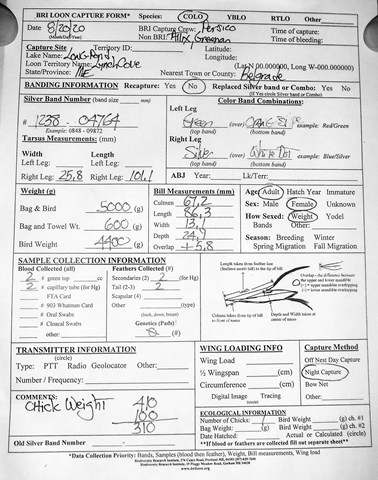 BRI LOON CAPTURE FORM* Species: COLO YBLO RTLO Other
Date 8/20/20 BRI Capture Crew: Persico Time of capture:
(Month/Day/Year) Non BRI: Alix, Greenan Time of bleeding:
Capture Site Territory ID: Latitude:
Lake Name: Long Pond Longitude:
Loon Territory Name: Lynch Cove Lat N 00.00000, Long W-000.00000
State/Province: ME Nearest Town or County: Belgrade
BANDING INFORMATION Recapture: Yes No Replaced Silver band or Combo: Yes No
(If Yes circle Silver band or Combo)
Silver Band Number (band size mm) Color Band Combinations:
# 1238 - 04764
Example: 0848 - 09872
Left Leg
Green (over) example: Red/Green
(top band) (bottom band)
Tarsus Measurements: (mm) Right Leg
Width Length Silver (over) White Dot example: Blue/Silver
Left Leg: Left Leg: (top band) (bottom band)
Right Leg: 25.8 Right Leg: 101.1 ABJ Year: Lk/Terr:
Weight (g) Bill Measurements (mm) Age: Adult Hatch Year Immature
Bag & Bird 5000 (g) Culmen 67.2 Sex: Male Female Unknown
Length 86.3 How Sexed: Weight Yodel
Bag and Towel Wt. 600 (g) Width Other:
Depth Season: Breeding Winter
Bird Weight 4400 (g) Overlap +5.8 Spring Migration Fall Migration
SAMPLE COLLECTION INFORMATION
Blood Collected (all) Feathers Collected
2 # green top cc Secondaries (2) (for Hg)
2 # capillary tube (for Hg) Tail (2-3) 2 (for Hg)
FTA Card Scapular (4)
# 903 Whatman Card Other (type)
# Oral Swabs (neck, down, breast)
# Cloacal Swabs Genetics (Pads)
other: (#)
Length taken from feather line
(feathers meets bill) to the tip of bill
Overlap - the difference between
the upper and lower mandible
(+) = upper mandible overlapping
(-) = lower mandible overlapping
Culmen taken from tip of bill
to front of nares
Depth and Width taken at
center of nares
TRANSMITTER INFORMATION
(circle)
Type: PTT Radio Geolocator Other:
Number / Frequency:
WING LOADING INFO
Wing Load
½ Wingspan (cm)
Circumference (cm)
Digital Image Tracing
(circle)
Capture Method
Off Nest Day Capture
Night Capture
Bow Net
Other:
COMMENTS:
Chick Weight 410
100
310
ECOLOGICAL INFORMATION
Number of Chicks: Bird Weight (g) ch. #1
Bag Weight: (g) Bird Weight (g) ch. #2
Date Hatched: Actual or Calculated (circle)
**If blood or feathers are collected fill out separate sheet**
Old Silver Band Number
*Data Collection Priority: Bands, Samples (blood then feather), Weight, Bill Measurements, Wing load